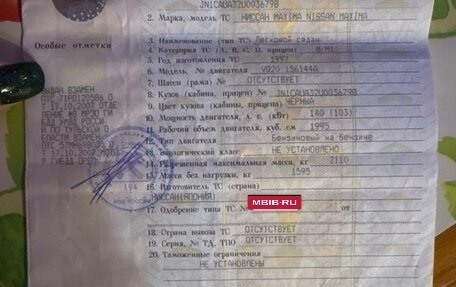 JN1CAUA32U0036798
2. Марка, модель ТС НИССАН MAXIMA NISSAN MAXIMA
Особые отметки
3. Наименование (тип ТС) Легковой седан
4. Категория ТС (A, B, C, D, прицеп) B/M1
5. Год изготовления ТС 1997
6. Модель, № двигателя VQ20 156144A
7. Шасси (рама) № ОТСУТСТВУЕТ
8. Кузов (кабина, прицеп) № JN1CAUA32U0036798
9. Цвет кузова (кабины, прицепа) ЧЕРНЫЙ
10. Мощность двигателя, л. с. (кВт) 140 (103)
11. Рабочий объем двигателя, куб. см 1995
12. Тип двигателя Бензиновый на бензине
13. Экологический класс НЕ УСТАНОВЛЕНО
14. Разрешенная максимальная масса, кг 2110
15. Масса без нагрузки, кг 1595
16. Изготовитель ТС (страна)
НИССАН(ЯПОНИЯ)
17. Одобрение типа ТС № от
MBIB.RU
18. Страна вывоза ТС ОТСУТСТВУЕТ
19. Серия, № ТД, ТПО ОТСУТСТВУЕТ
20. Таможенные ограничения
НЕ УСТАНОВЛЕНЫ
ВЫДАН ВЗАМЕН